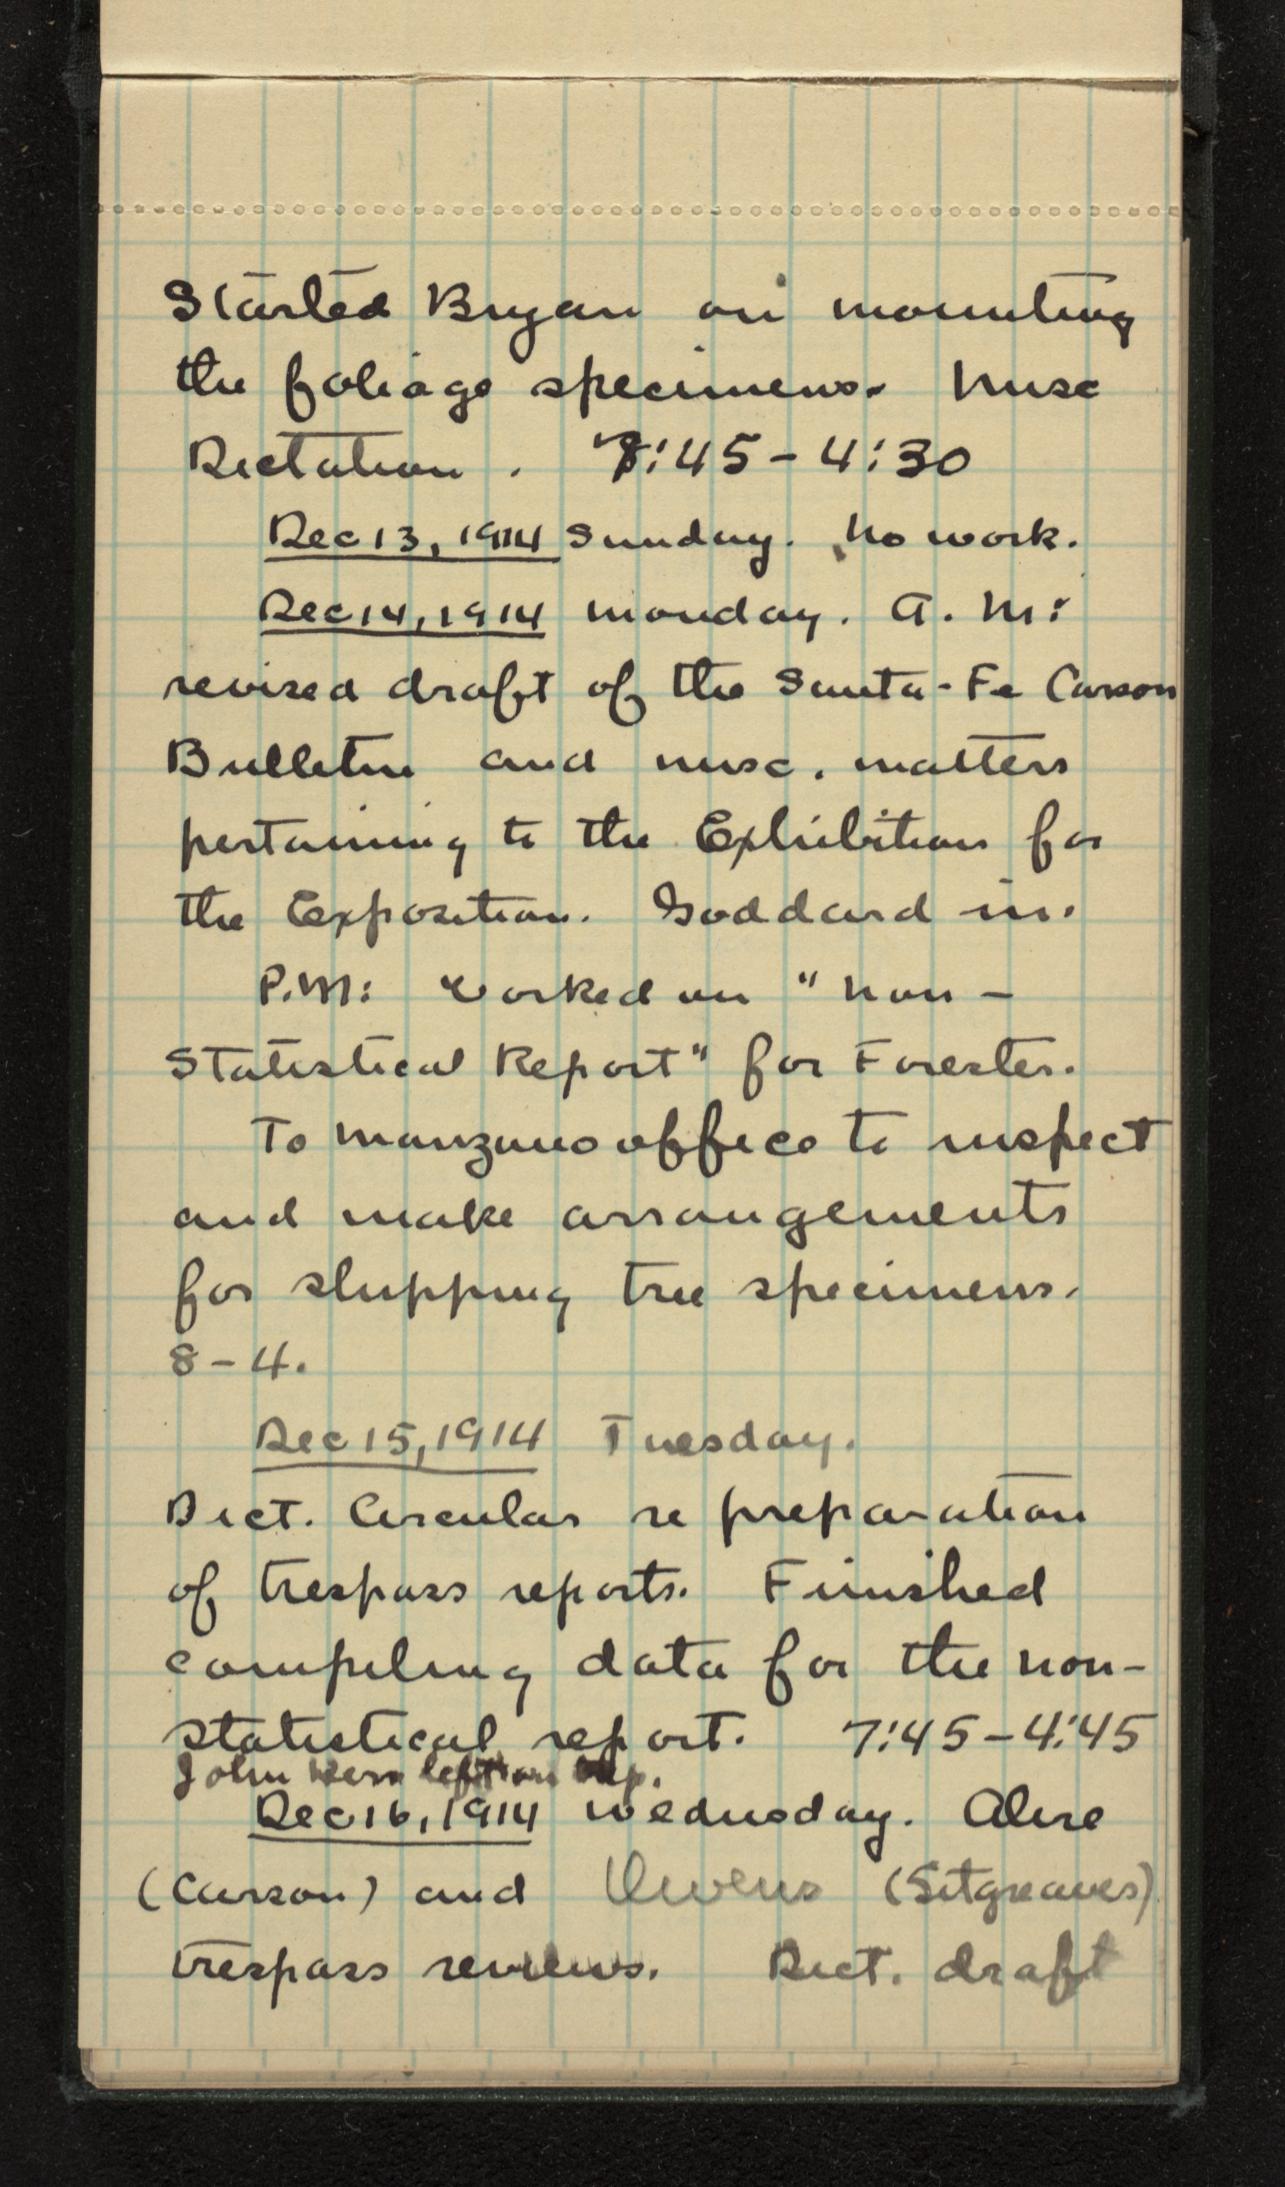 Started Bryan on mounting
the foliage specimens. Misc
Dictation. 7:45-4:30
Dec 13, 1914 Sunday. No work.
Dec 14, 1914 Monday. A.M:
revised draft of the Santa-Fe Carson
Bulletin and misc. matters
pertaining to the Exhibition for
the Exposition. Goddard in.
P.M: Worked on "Non-
Statistical Report" for Forester.
To Manzano office to inspect
and make arrangements
for shipping tree specimens.
8-4.
Dec 15, 1914 Tuesday.
Dict. Circular re preparation
of trespass reports. Finished
compiling data for the non-
statistical report. 7:45-4:45
John Kerr left on trip.
Dec 16, 1914 Wednesday. Alire
(Carson) and Owens (Sitgreaves)
trespass reviews. Dict. draft